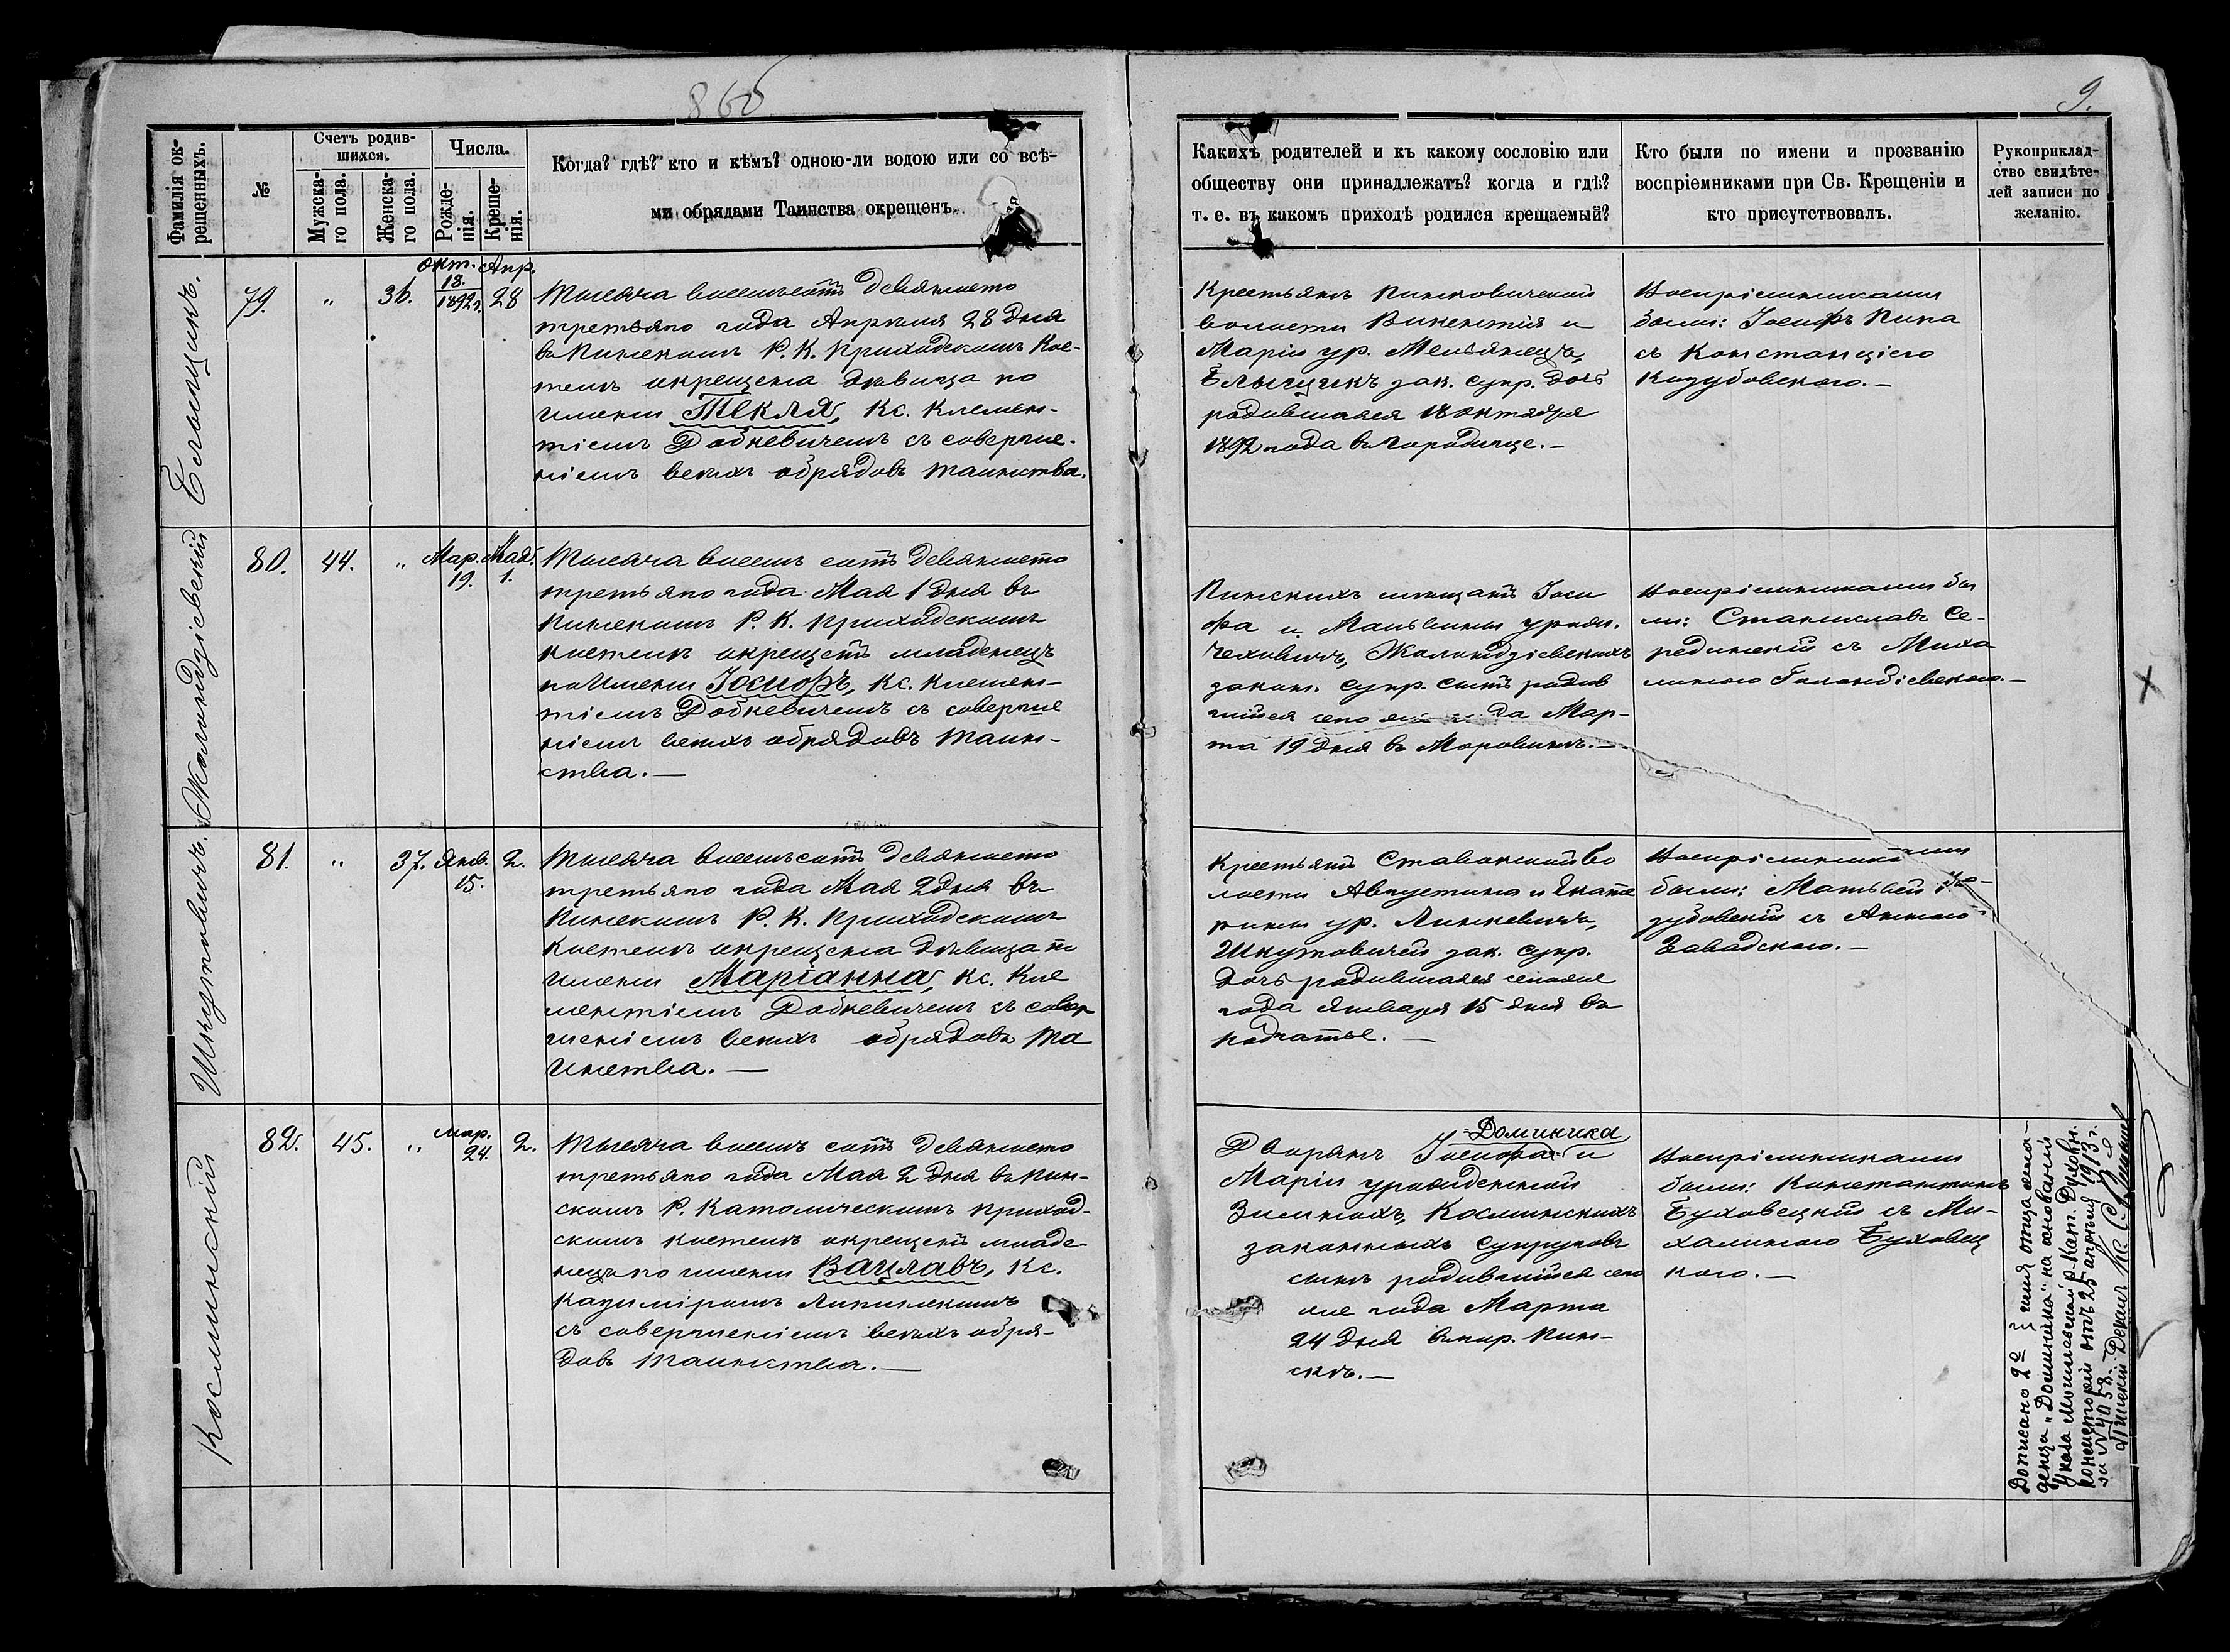 866
9.
Фамилія ок-
рещенныхъ.
№
Счетъ родив-
шихся.
Мужска-
го пола.
Женска-
го пола.
Числа.
Рожде-
нія.
Креще-
нія.
Когда? гдѣ? кто и кѣмъ? одною-ли водою или со всѣ-
ми обрядами Таинства окрещенъ.
Какихъ родителей и къ какому сословію или
обществу они принадлежатъ? когда и гдѣ?
т. е. въ какомъ приходѣ родился крещаемый?
Кто были по имени и прозванію
воспріемниками при Св. Крещеніи и
кто присутствовалъ.
Рукоприклад-
ство свидѣте-
лей записи по
желанію.
79.
"
36.
Окт.
18.
1892 г.
Апр.
28
Тысяча восемьсотъ девяносто
третьяго года Апрѣля 28 дня
въ Пинскомъ Р. К. приходскомъ Кос-
телѣ окрещена дѣвица по
имени Текля, Кс. Клемен-
тіемъ Добкевичемъ съ соверше-
ніемъ всѣхъ обрядовъ таинства.
Крестьянъ Пинковичской
волости Викентія и
Маріи ур.
зак. супр. дочь
родившаяся 18 октября
1892 года въ Городище.—
Воспріемниками
были: Іосифъ Липа
съ Констанціею
Козубовскою.—
Жоландзіевскій
80.
44.
"
Мар.
19.
Мая
1.
Тысяча восемь сотъ девяносто
третьяго года Мая 1 дня въ
Пинскомъ Р. К. приходскомъ
костелѣ окрещенъ младенецъ
по имени Іосифъ, Кс. Клемен-
тіемъ Добкевичемъ съ соверше
ніемъ всѣхъ обрядовъ таин-
ства.—
Пинскихъ мѣщанъ Іоси
фа и Мальвины урожд.
Чеховичъ, Жоландзіевскихъ
закон. супр. сынъ родив
шійся сего года Мар-
та 19 дня въ
Воспріемниками бы
ли: Станиславъ Се-
рединскій съ Миха
линою
Шкутовичъ.
81.
"
37.
Янв.
15.
2.
Тысяча восемьсотъ девяносто
третьяго года Мая 2 дня въ
Пинскомъ Р. К. Приходскомъ
костелѣ окрещена дѣвица по
имени Маріанна, Кс. Кле
ментіемъ Добкевичемъ съ совер
шеніемъ всѣхъ обрядовъ та
инства.—
Крестьянъ Ставокской во
лости Августина и Екате
рины ур. Линкевичъ,
Шкутовичей зак. супр.
дочь родившаяся сего
года Января 15 дня въ
Воспріемниками
были: Матвей Ко-
зубовскій съ Анною
Завадскою.—
Косминскій
82.
45.
"
Мар.
24.
2.
Тысяча восемь сотъ девяносто
третьяго года Мая 2 дня въ Пин-
скомъ Р. Католическомъ приход-
скомъ костелѣ окрещенъ младе-
нецъ по имени Вацлавъ, Кс.
Казиміромъ Липинскимъ
съ совершеніемъ всѣхъ обря-
довъ таинства.—
Доминика
Дворянъ Іосифа и
Маріи урожденной
Косминскихъ
законныхъ супруговъ
сынъ родившійся сего
же года Марта
24 дня въ гор. Пин-
скѣ.—
Воспріемниками
были: Константинъ
Буховецкій съ Ми-
халиною Буховец
кою.—
Дописано 2е имя отца мла-
денца „Доминика" на основаніи
Указа Могилевской Р. Кат. Духовн.
Консисторіи отъ 25 апрѣля 1913 г.
за N 4058.
Пинскій Деканъ Кс.